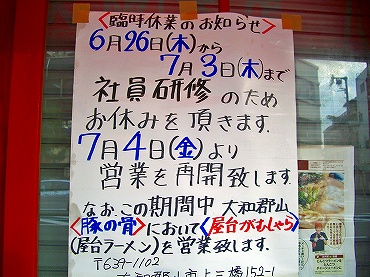 〈臨時休業のお知らせ〉
6月26日(木)から
7月3日(木)まで
社員研修のため
お休みを頂きます.
7月4日(金)より
営業を再開致します.
なお、この期間中 大和郡山
〈豚の骨〉において〈屋台がむしゃら〉
(屋台ラーメン)を営業致します.
〒639-1102
大和郡山市上三橋152-1